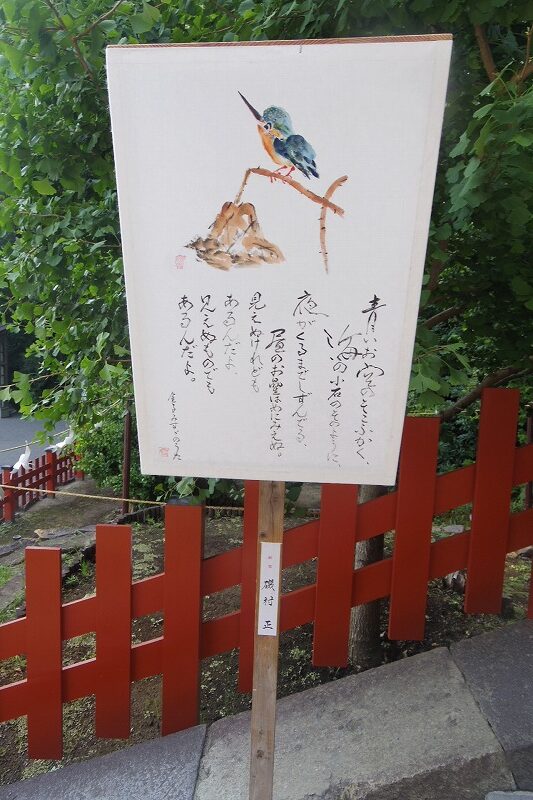 青いお空のそこふかく、
海の小石のそのように、
夜がくるまでしずんでる、
昼のお星はめにみえぬ。
見えぬけれども
あるんだよ、
見えぬものでも
あるんだよ。
金子みすゞのうた
磯村 正